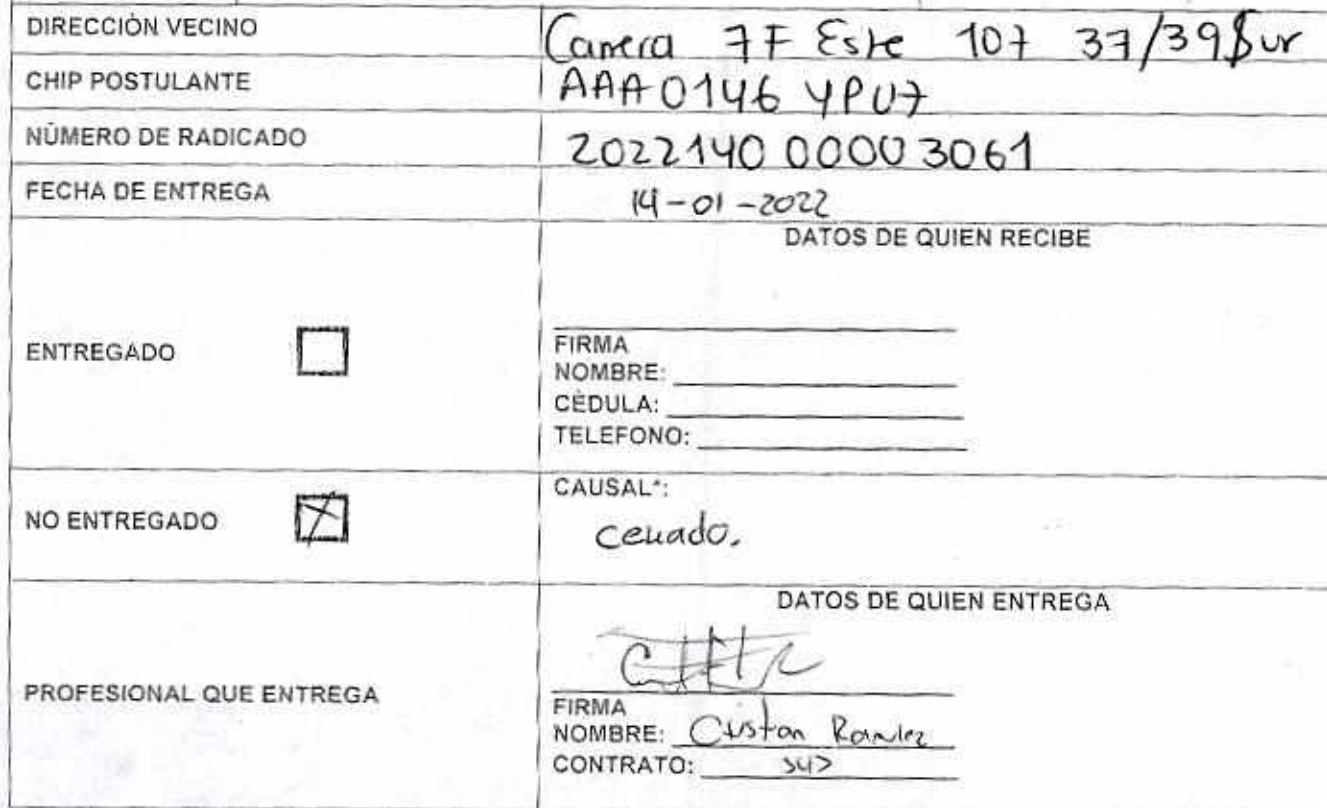 DIRECCIÓN VECINO Carrera 7F Este 107 37/39 Sur
CHIP POSTULANTE AAA 0146 YPU7
NÚMERO DE RADICADO 2022140 00003061
FECHA DE ENTREGA 14-01-2022
DATOS DE QUIEN RECIBE
ENTREGADO
FIRMA
NOMBRE:
CÈDULA:
TELEFONO:
NO ENTREGADO
CAUSAL*:
cerrado.
DATOS DE QUIEN ENTREGA
PROFESIONAL QUE ENTREGA
FIRMA
NOMBRE: Cristian Ramírez
CONTRATO: